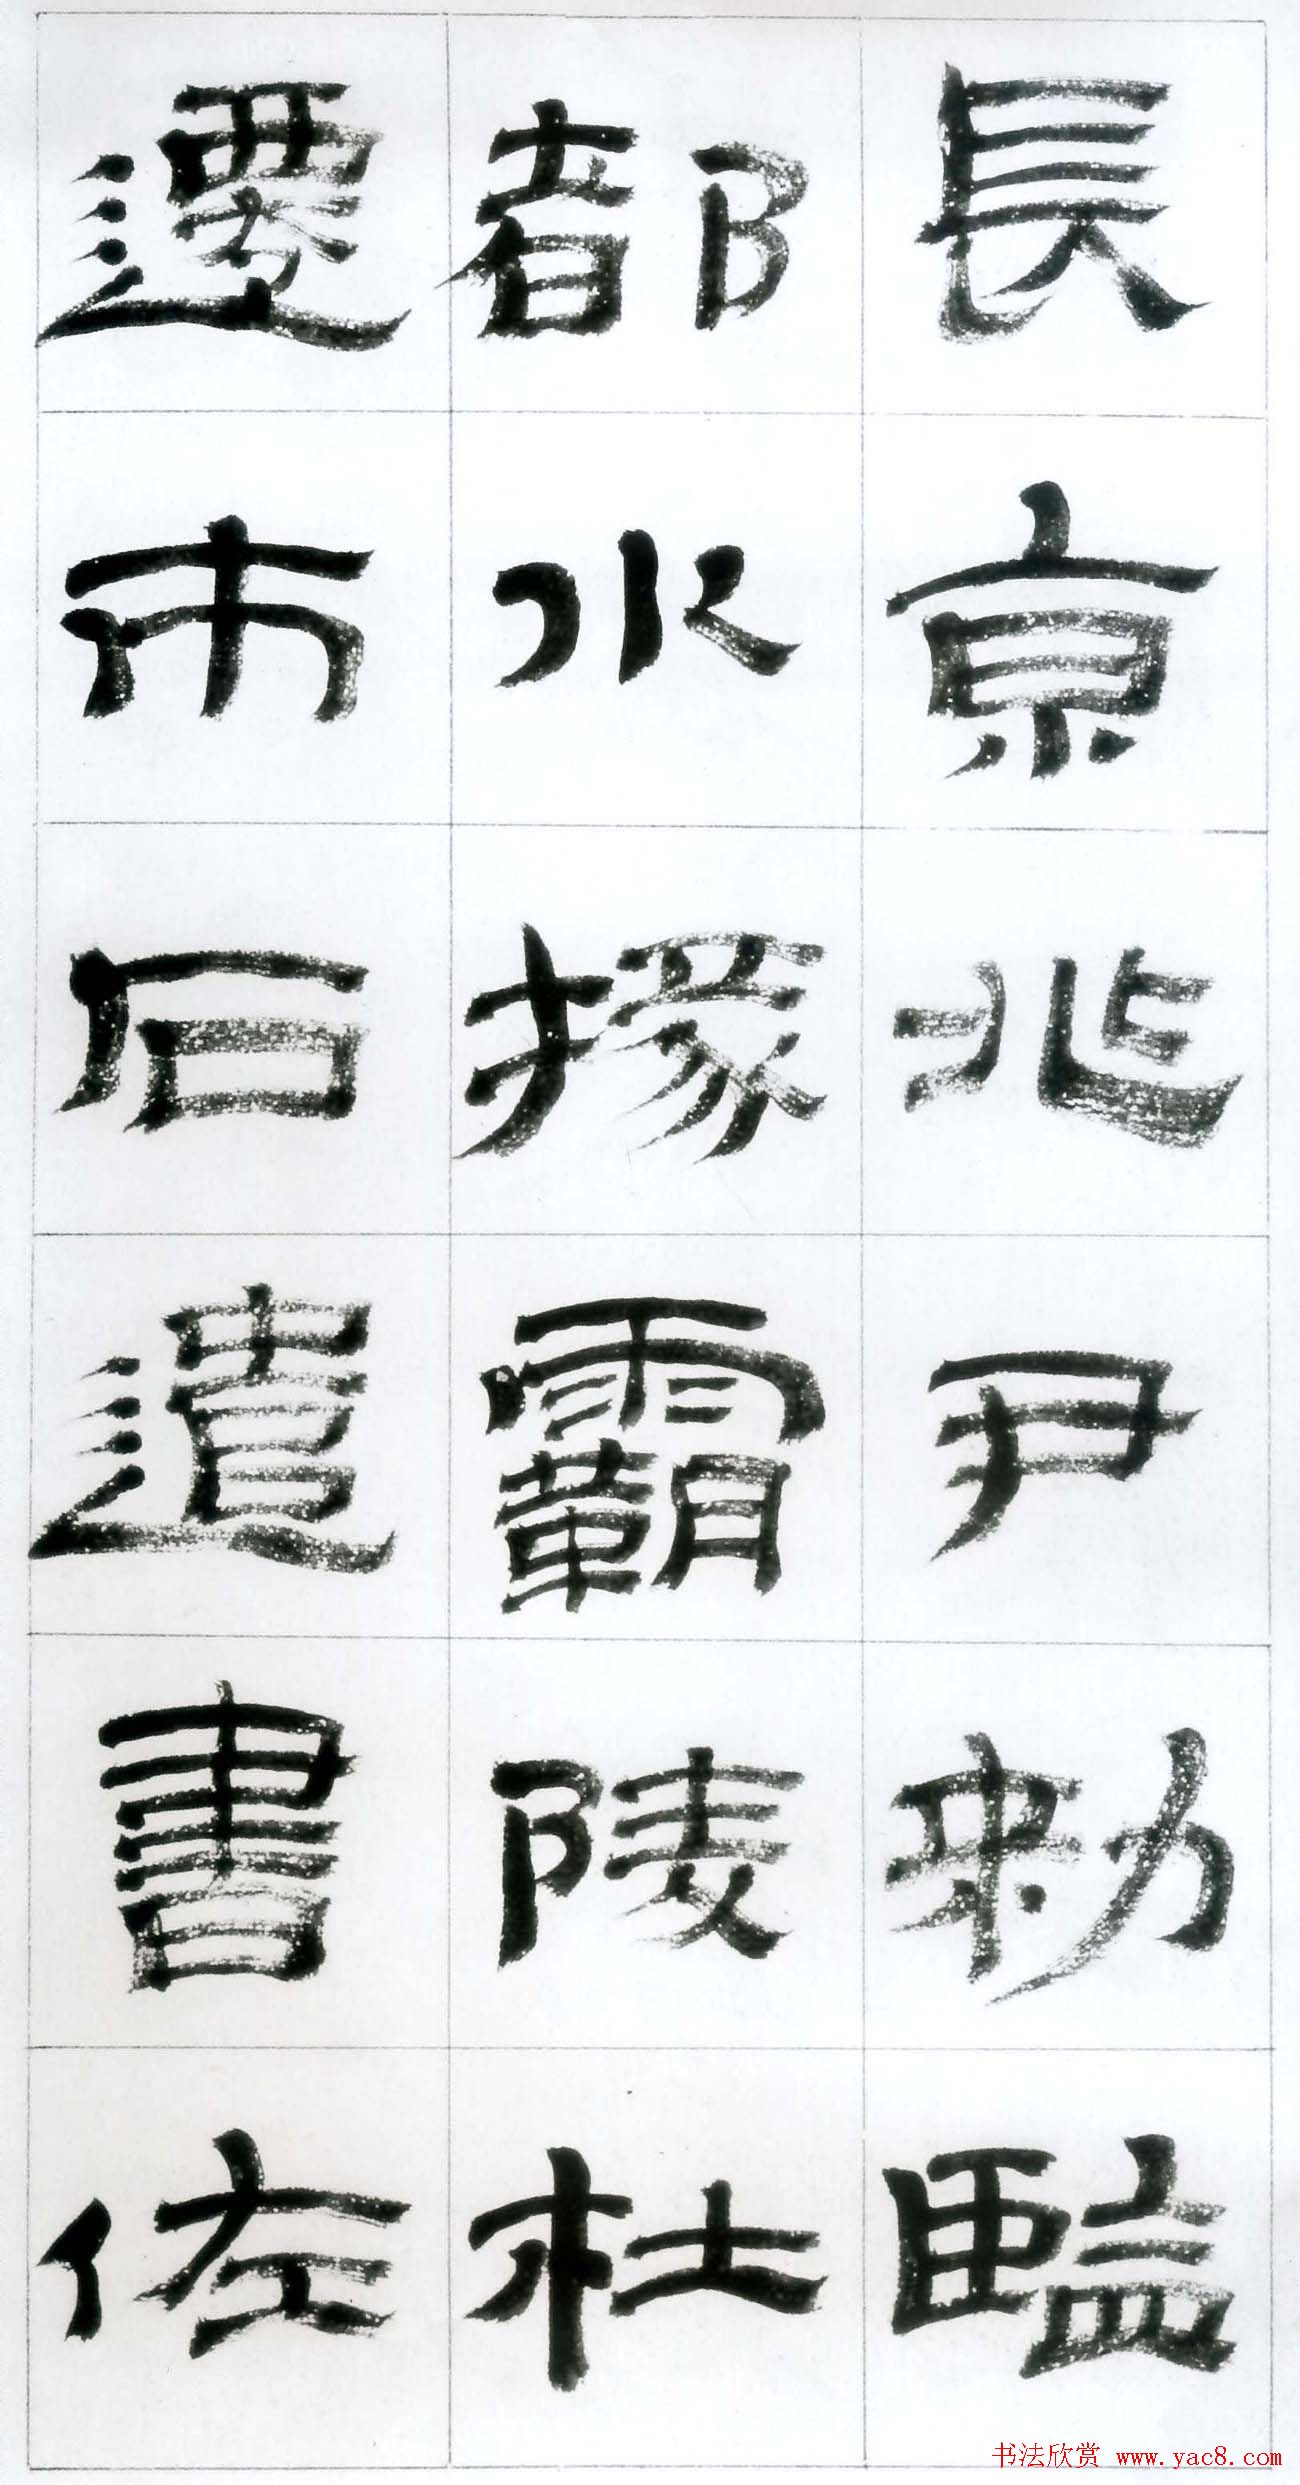 長京兆尹勑監
都水掾霸陵杜
遷市石遣書佐
书法欣赏 www.yac8.com